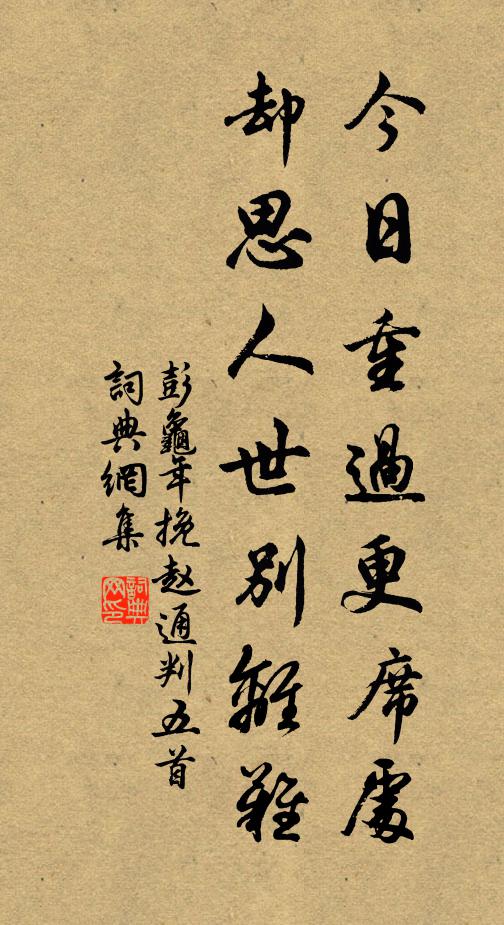 今日重過更席處
却思人世別離難
彭龜年挽赵通判五首
詞典網集
詞典网印